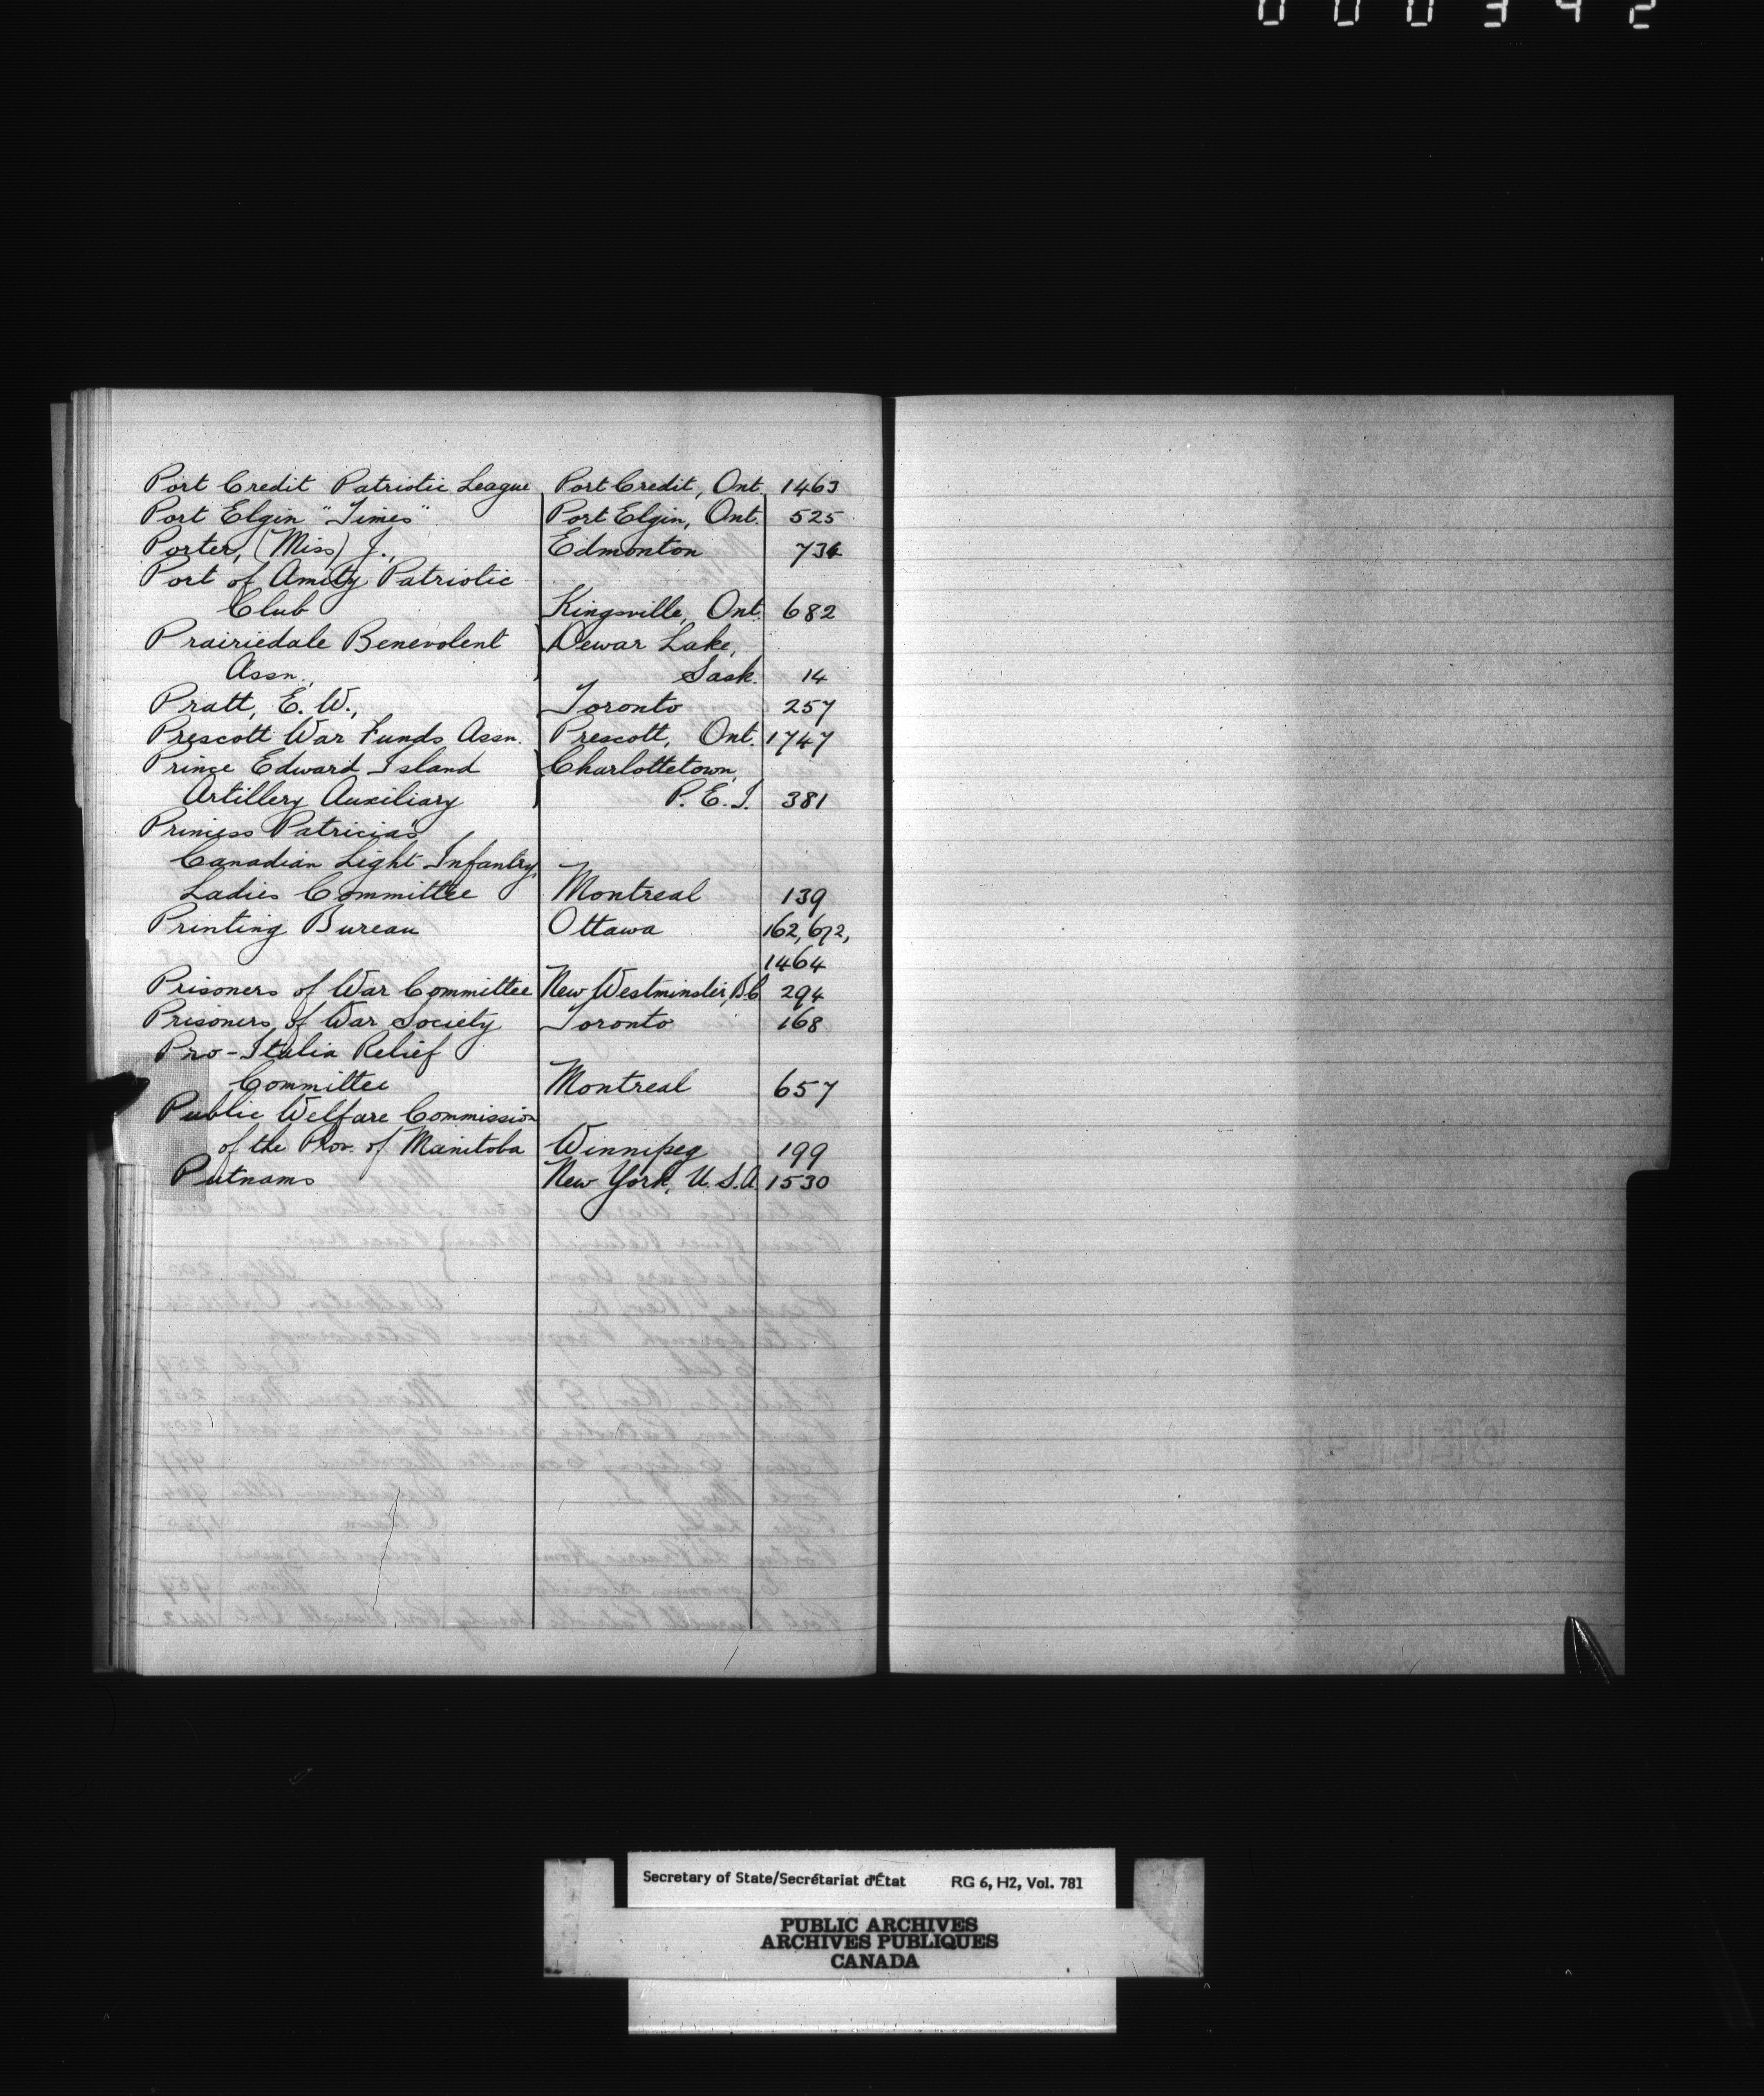 000342
Port Credit Patriotic League Port Credit, Ont. 1463
Port Elgin "Times" Port Elgin, Ont. 525
Porter, (Miss) J., Edmonton 734
Port of Amity Patriotic
Club Kingsville, Ont. 682
Prairiedale Benevolent Dewar Lake,
Assn., Sask. 14
Pratt, E. W., Toronto 257
Prescott War Funds Assn. Prescott, Ont. 1747
Prince Edward Island Charlottetown,
Artillery Auxiliary P. E. I. 381
Princess Patricia's
Canadian Light Infantry,
Ladies Committee Montreal 139
Printing Bureau Ottawa 162, 672,
1464
Prisoners of War Committee New Westminster, B.C. 294
Prisoners of War Society Toronto 168
Pro-Italia Relief
Committee Montreal 657
Public Welfare Commission
of the Prov. of Manitoba Winnipeg 199
Putnams New York, U. S. A. 1530
Secretary of State/Secrétariat d'État RG 6, H2, Vol. 781
PUBLIC ARCHIVES
ARCHIVES PUBLIQUES
CANADA